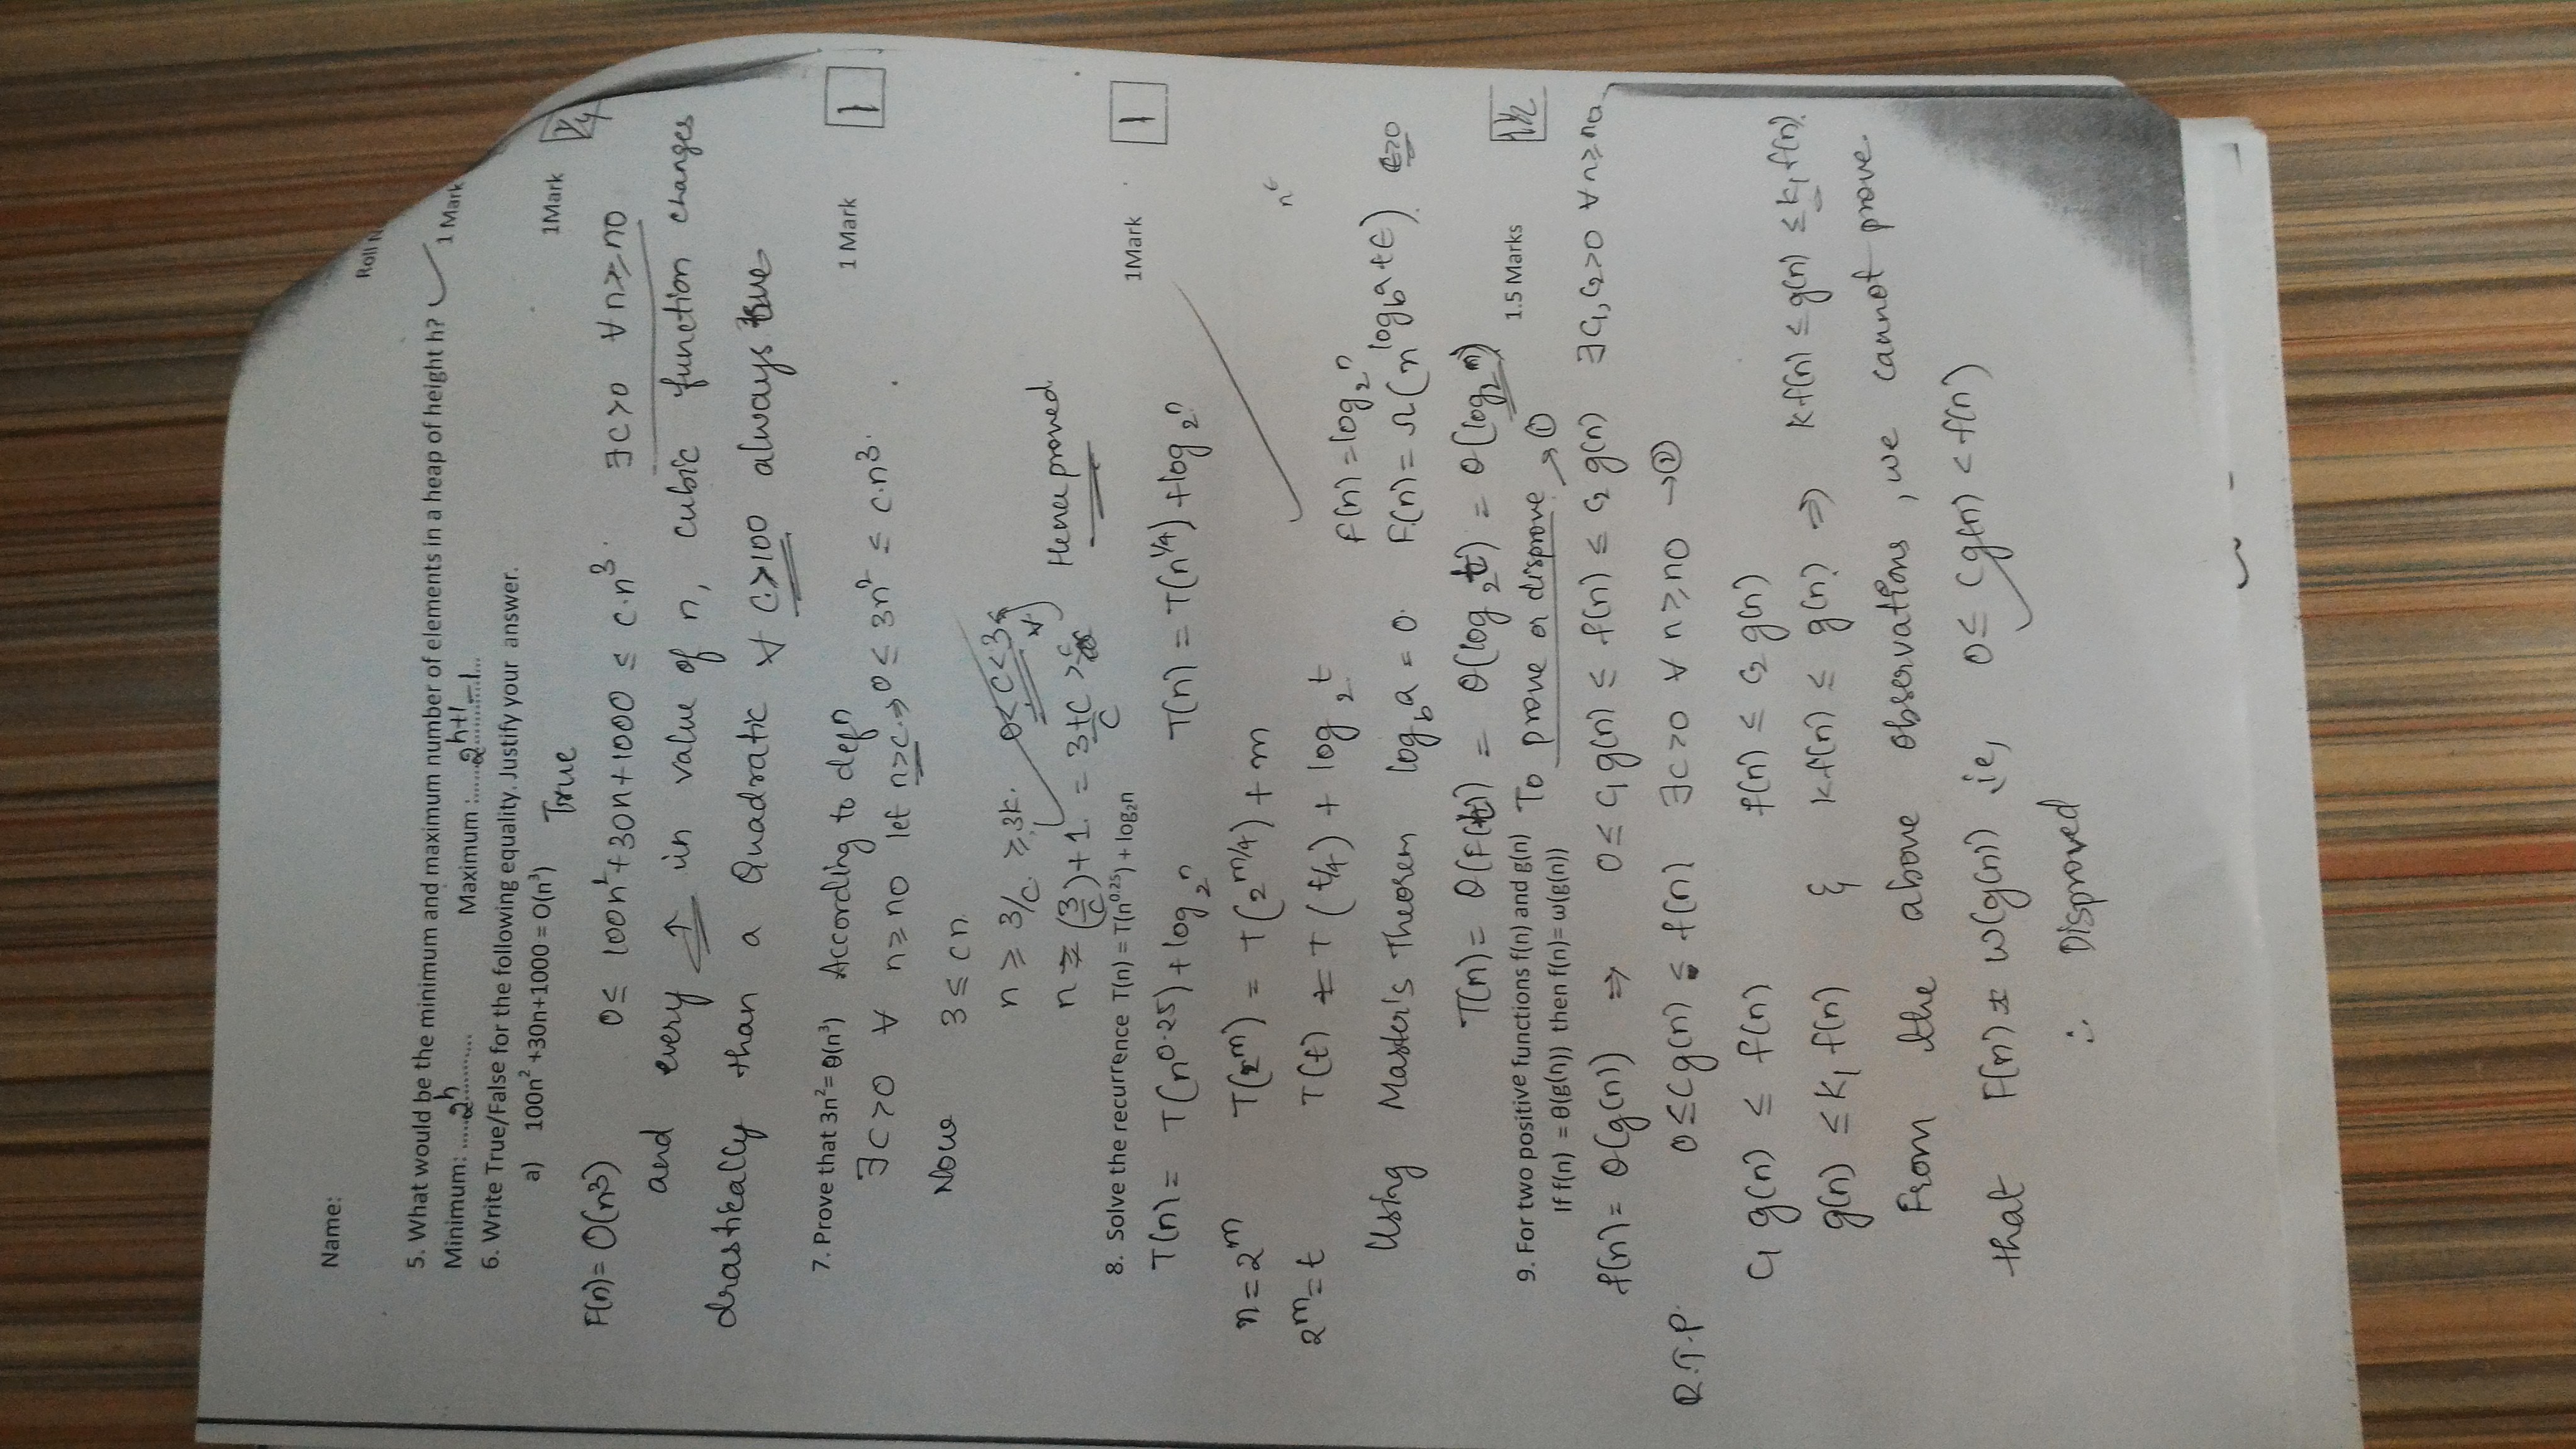 Name:
Roll N
5. What would be the minimum and maximum number of elements in a heap of height h? ✓ 1 Mark
Minimum: ......2^h........... Maximum :......2^(h+1) -1......
6. Write True/False for the following equality. Justify your answer. 1Mark 1/4
a) 100n² +30n+1000 = O(n³) True
F(n) = O(n³) 0 ≤ 100n²+30n+1000 ≤ c.n³. ∃ c>0 ∀ n ≥ n0
and every ↑ in value of n, cubic function changes
drastically than a Quadratic ∀ c>100 always true
7. Prove that 3n² = θ(n³) According to defn 1 Mark 1
∃ c>0 ∀ n ≥ n0 let n>c ⇒ 0 ≤ 3n² ≤ c.n³.
Now 3 ≤ cn
n ≥ 3/c ≥ 3k. 0<c<3
n ≥ (3/c)+1 = (3+c)/c > Hence proved
8. Solve the recurrence T(n) = T(n^0.25) + log₂n 1Mark 1
T(n) = T(n^0.25) + log₂n T(n) = T(n^1/4) + log₂n
n = 2^m T(2^m) = T(2^m/4) + m
n^ε
2^m = t T(t) = T(t/4) + log₂t F(n) = log₂n
Using Master's Theorem log_b a = 0. F(n) = Ω(n^(log_b a + ε)) ε>0
T(n) = θ(F(t)) = θ(log₂t) = θ(log₂m)
9. For two positive functions f(n) and g(n) To prove or disprove → ① 1.5 Marks 1½
If f(n) = θ(g(n)) then f(n)= ω(g(n))
f(n) = θ(g(n)) ⇒ 0 ≤ c₁ g(n) ≤ f(n) ≤ c₂ g(n) ∃ c₁, c₂>0 ∀ n ≥ n0
R.T.P. 0 ≤ c g(n) ≤ f(n) ∃ c>0 ∀ n ≥ n0 → ②
c₁ g(n) ≤ f(n) f(n) ≤ c₂ g(n)
g(n) ≤ k₁ f(n) & k f(n) ≤ g(n) ⇒ k f(n) ≤ g(n) ≤ k₁ f(n)
From the above observations, we cannot prove
that F(n) ≠ ω(g(n)) ie, 0 ≤ c g(n) < f(n)
∴ Disproved